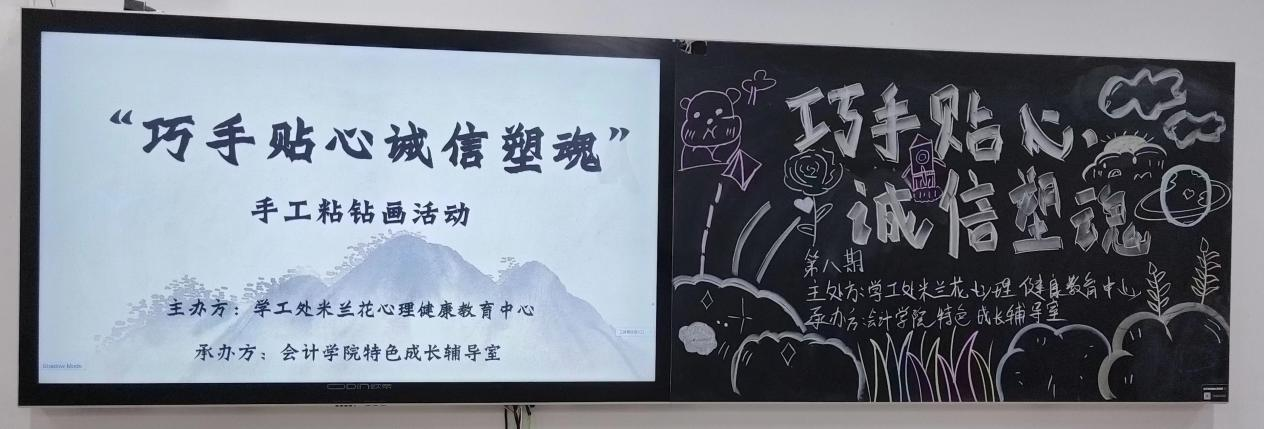 “巧手贴心诚信塑魂”
手工粘钻画活动
主办方：学工处米兰花心理健康教育中心
承办方：会计学院特色成长辅导室
Shadow Mode
巧手贴心
诚信塑魂
第八期
主处方:学工处米兰花心理健康教育中心
承办方:会计学院特色成长辅导室